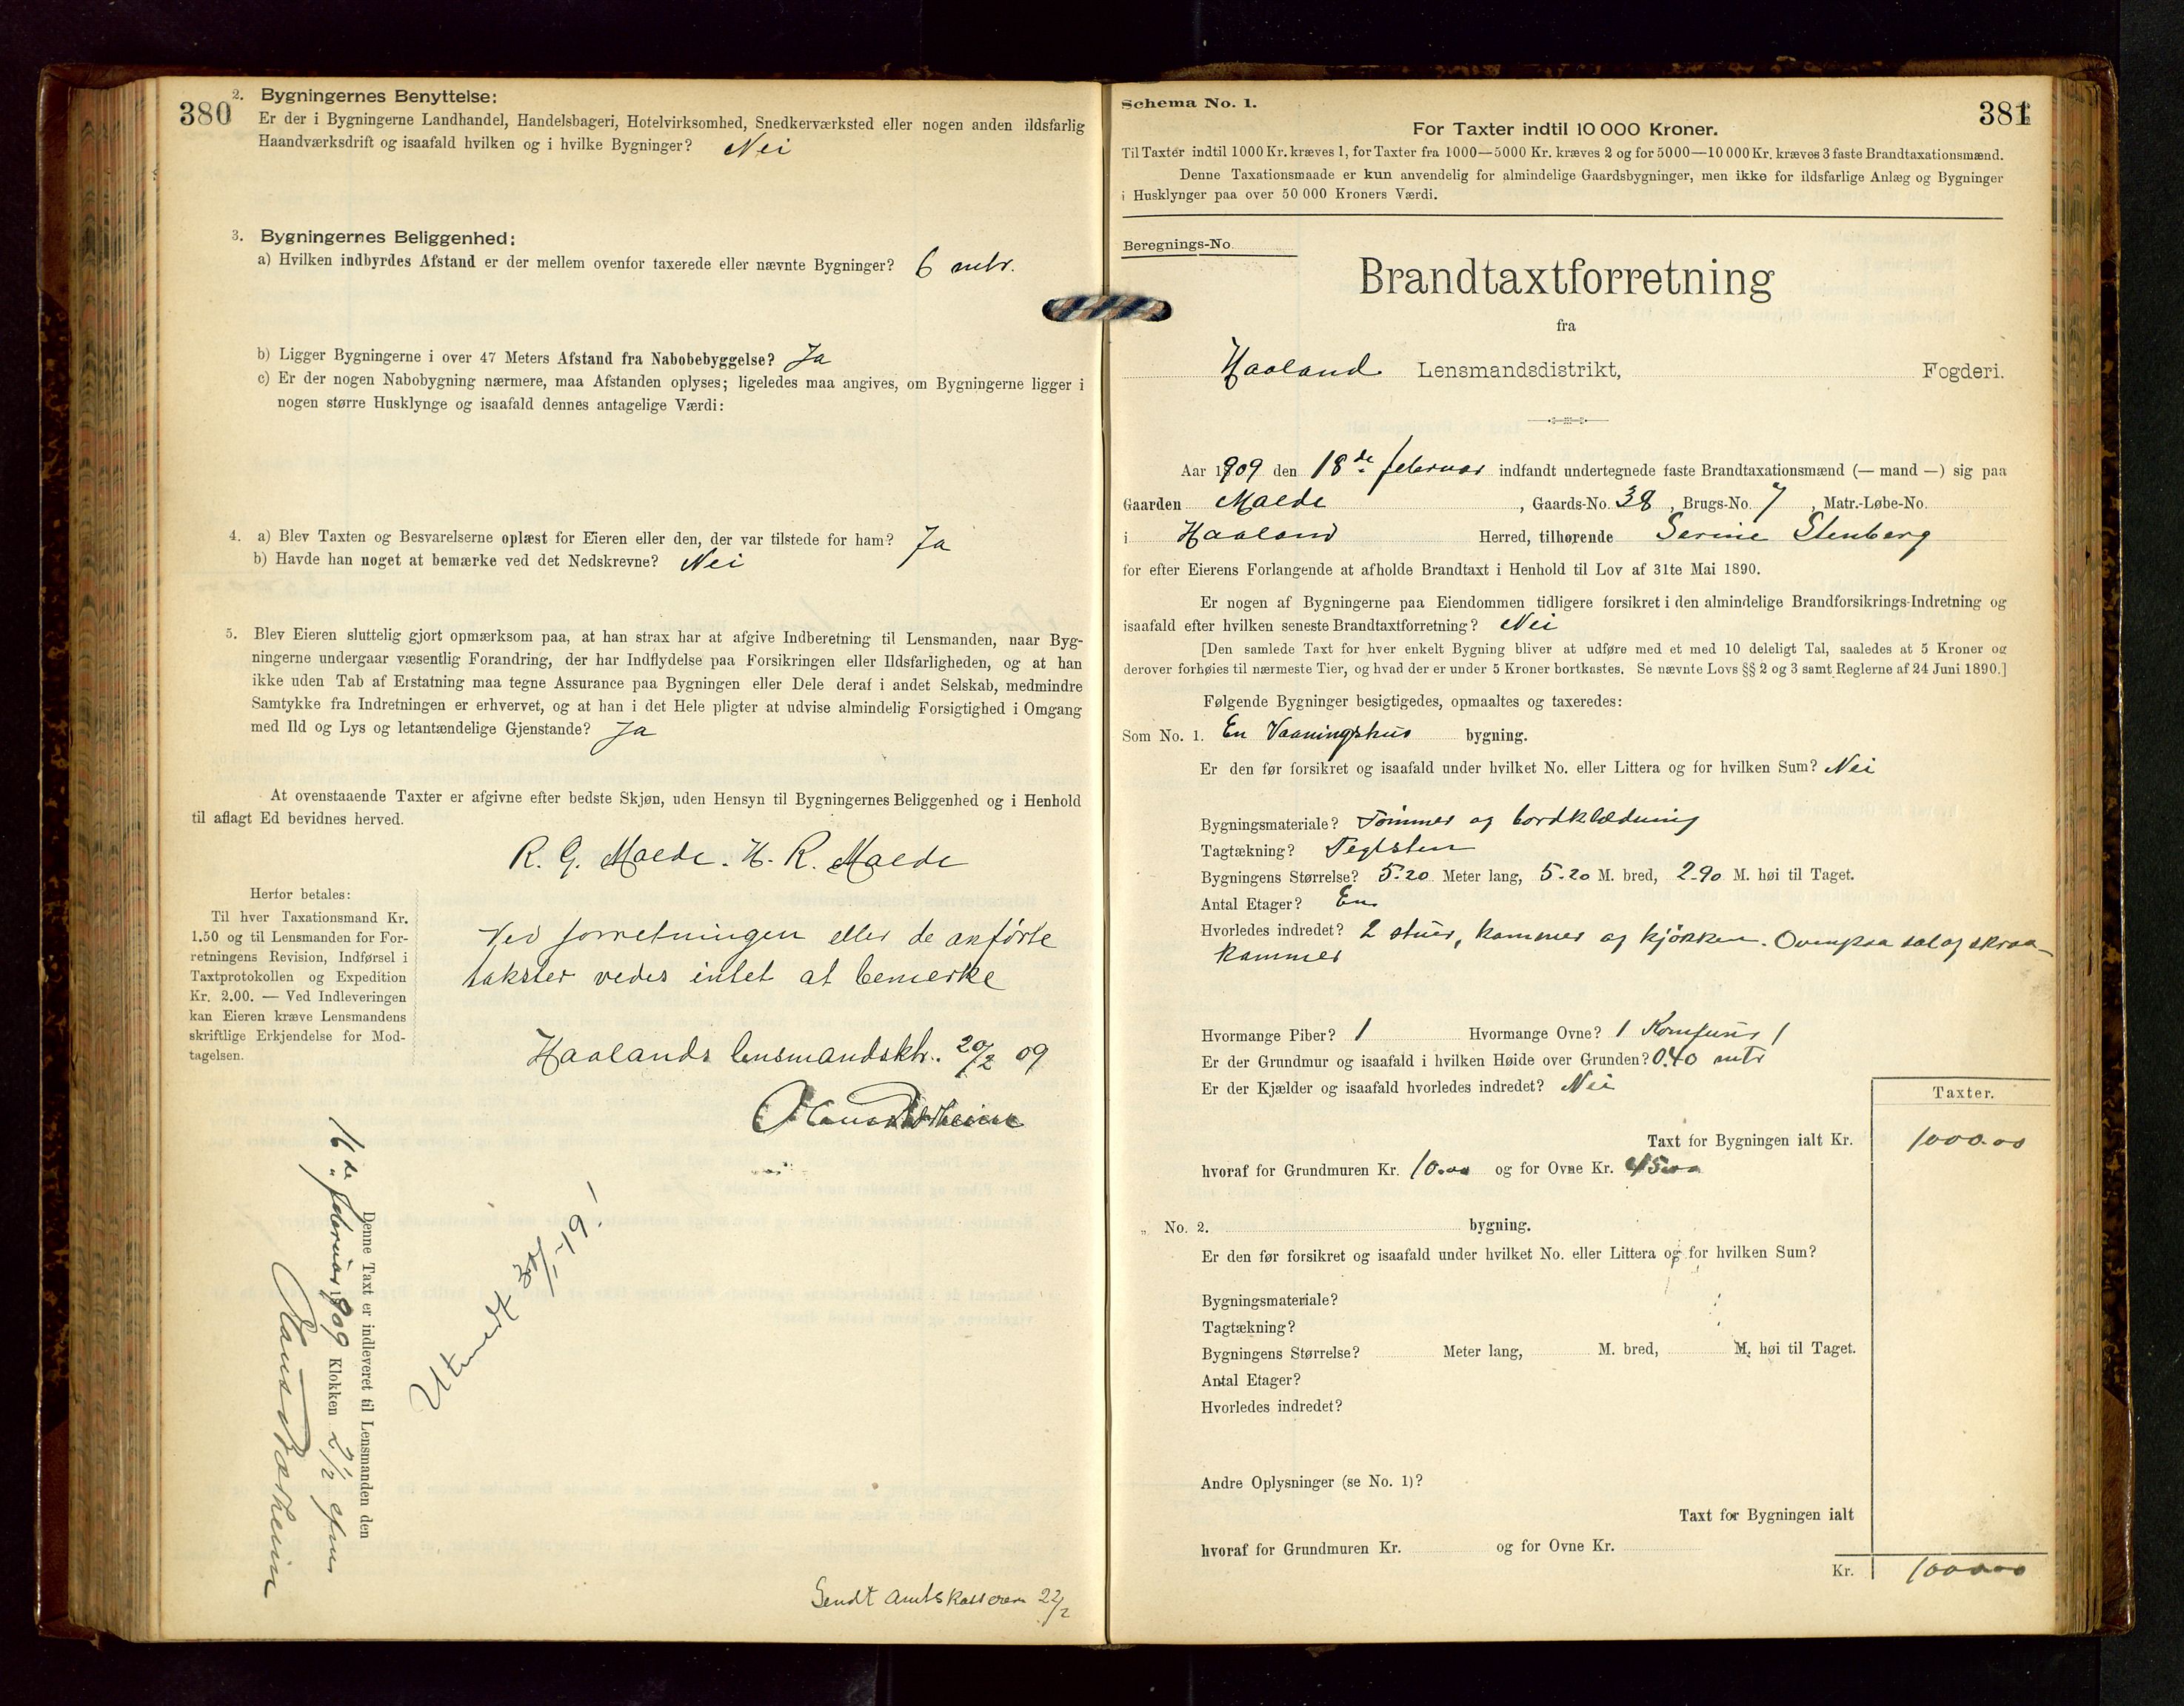 380
2. Bygningernes Benyttelse:
Er der i Bygningerne Landhandel, Handelsbageri, Hotelvirksomhed, Snedkerværksted eller nogen anden ildsfarlig
Haandværksdrift og isaafald hvilken og i hvilke Bygninger? Nei
3. Bygningernes Beliggenhed:
a) Hvilken indbyrdes Afstand er der mellem ovenfor taxerede eller nævnte Bygninger? 6 mtr.
b) Ligger Bygningerne i over 47 Meters Afstand fra Nabobebyggelse? Ja
c) Er der nogen Nabobygning nærmere, maa Afstanden oplyses; ligeledes maa angives, om Bygningerne ligger i
nogen større Husklynge og isaafald dennes antagelige Værdi:
4. a) Blev Taxten og Besvarelserne oplæst for Eieren eller den, der var tilstede for ham? Ja
b) Havde han noget at bemærke ved det Nedskrevne? Nei
5. Blev Eieren sluttelig gjort opmærksom paa, at han strax har at afgive Indberetning til Lensmanden, naar Byg-
ningerne undergaar væsentlig Forandring, der har Indflydelse paa Forsikringen eller Ildsfarligheden, og at han
ikke uden Tab af Erstatning maa tegne Assurance paa Bygningen eller Dele deraf i andet Selskab, medmindre
Samtykke fra Indretningen er erhvervet, og at han i det Hele pligter at udvise almindelig Forsigtighed i Omgang
med Ild og Lys og letantændelige Gjenstande? Ja
At ovenstaaende Taxter er afgivne efter bedste Skjøn, uden Hensyn til Bygningernes Beliggenhed og i Henhold
til aflagt Ed bevidnes herved.
R. G. Malde. H. R. Malde
Herfor betales:
Til hver Taxationsmand Kr.
1.50 og til Lensmanden for For-
retningens Revision, Indførsel i
Taxtprotokollen og Expedition
Kr. 2.00. — Ved Indleveringen
kan Eieren kræve Lensmandens
skriftlige Erkjendelse for Mod-
tagelsen.
Ved forretningen eller de anførte
takster vedes intet at bemerke
Haalands lensmandsktr. 20/2 09
Denne Taxt er indleveret til Lensmanden den
16de februar 1909 Klokken 2 1/2 efm
Utmeldt 30/1-19!
Sendt Amtskasseren 22/2
Schema No. 1.
381
For Taxter indtil 10 000 Kroner.
Til Taxter indtil 1000 Kr. kræves 1, for Taxter fra 1000—5000 Kr. kræves 2 og for 5000—10 000 Kr. kræves 3 faste Brandtaxationsmænd.
Denne Taxationsmaade er kun anvendelig for almindelige Gaardsbygninger, men ikke for ildsfarlige Anlæg og Bygninger
i Husklynger paa over 50 000 Kroners Værdi.
Beregnings-No.
Brandtaxtforretning
fra
Haaland Lensmandsdistrikt, Fogderi.
Aar 1909 den 18de februar indfandt undertegnede faste Brandtaxationsmænd (— mand —) sig paa
Gaarden Malde, Gaards-No. 38, Brugs-No. 7, Matr.-Løbe-No.
i Haaland Herred, tilhørende Serine Stenberg
for efter Eierens Forlangende at afholde Brandtaxt i Henhold til Lov af 31te Mai 1890.
Er nogen af Bygningerne paa Eiendommen tidligere forsikret i den almindelige Brandforsikrings-Indretning og
isaafald efter hvilken seneste Brandtaxtforretning? Nei
[Den samlede Taxt for hver enkelt Bygning bliver at udføre med et med 10 deleligt Tal, saaledes at 5 Kroner og
derover forhøies til nærmeste Tier, og hvad der er under 5 Kroner bortkastes. Se nævnte Lovs §§ 2 og 3 samt Reglerne af 24 Juni 1890.]
Følgende Bygninger besigtigedes, opmaaltes og taxeredes:
Som No. 1. En Vaaningshus bygning.
Er den før forsikret og isaafald under hvilket No. eller Littera og for hvilken Sum? Nei
Bygningsmateriale? Tømmer og bordklædning
Tagtækning? Teglsten
Bygningens Størrelse? 5.20 Meter lang, 5.20 M. bred, 2.90 M. høi til Taget.
Antal Etager? En
Hvorledes indredet? 2 stuer, kammer og kjøkken. Ovenpaa sal og skraa-
kammer
Hvormange Piber? 1 Hvormange Ovne? 1 Komfurer 1
Er der Grundmur og isaafald i hvilken Høide over Grunden? 0.40 mtr
Er der Kjælder og isaafald hvorledes indredet? Nei
Taxter.
Taxt for Bygningen ialt Kr. 1000.00
hvoraf for Grundmuren Kr. 10.00 og for Ovne Kr. 45.00
„ No. 2. bygning.
Er den før forsikret og isaafald under hvilket No. eller Littera og for hvilken Sum?
Bygningsmateriale?
Tagtækning?
Bygningens Størrelse? Meter lang, M. bred, M. høi til Taget.
Antal Etager?
Hvorledes indredet?
Andre Oplysninger (se No. 1)?
Taxt for Bygningen ialt
hvoraf for Grundmuren Kr. og for Ovne Kr.
Kr. 1000.00